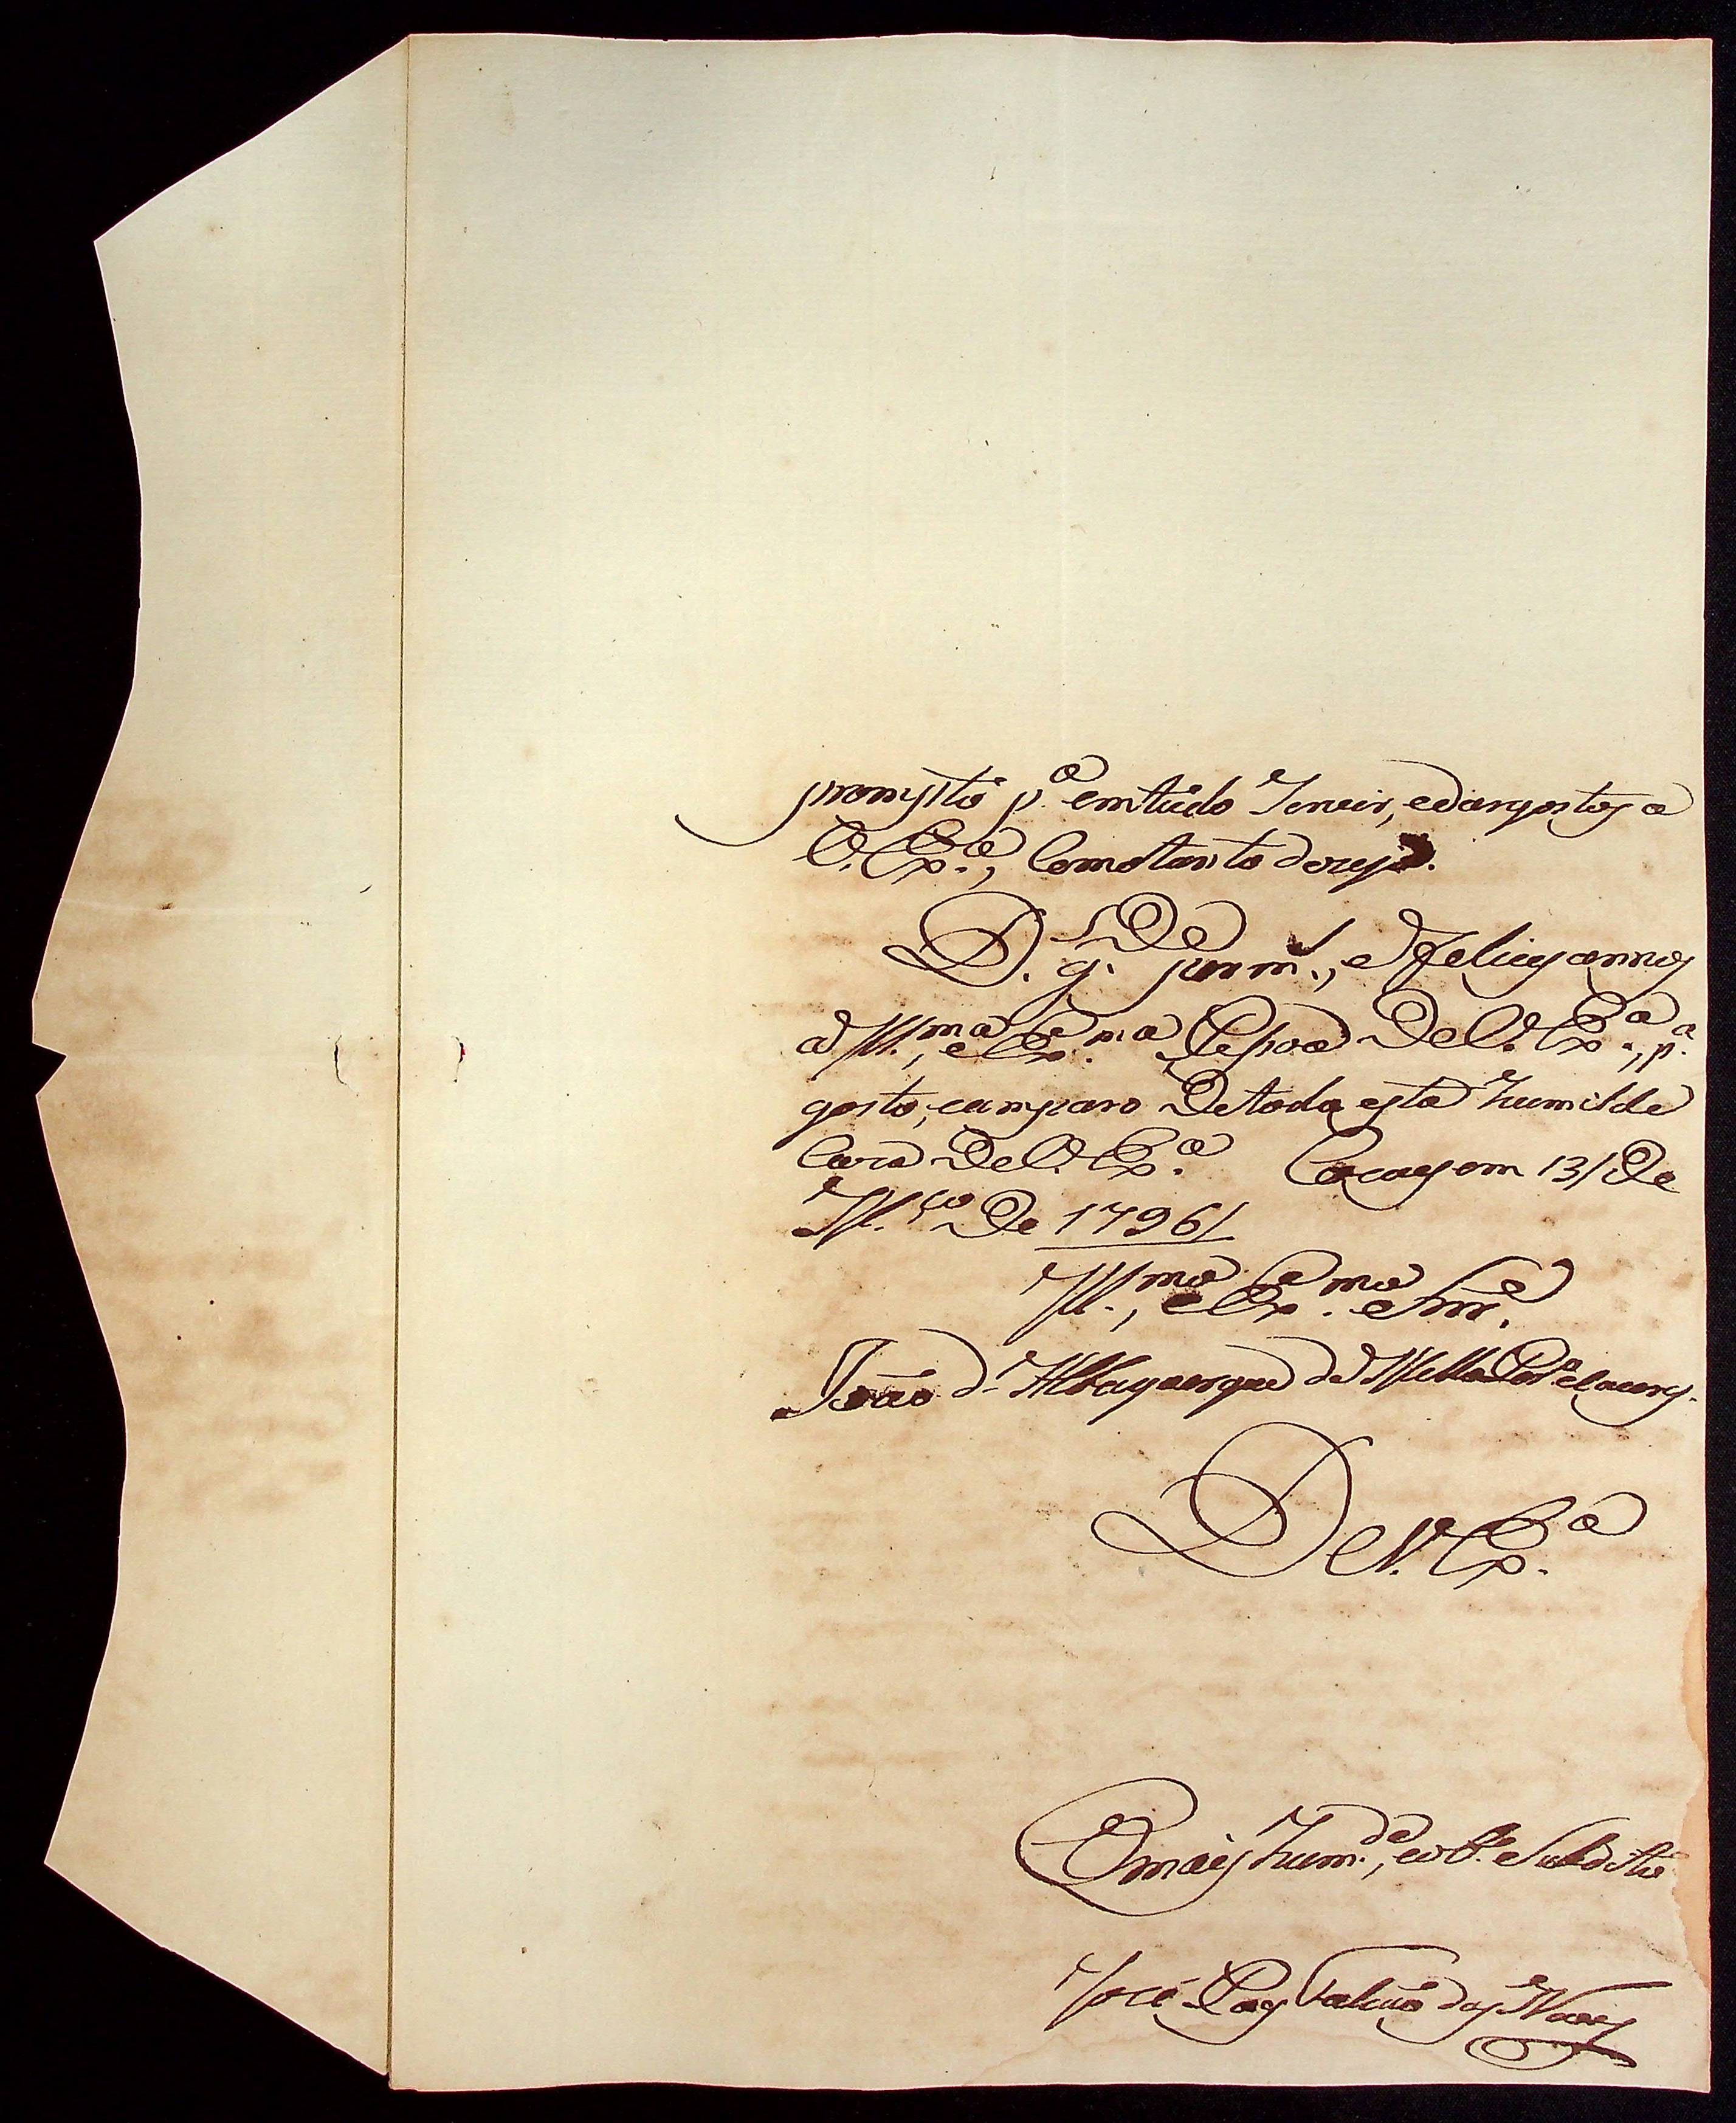 prompto p.ª em tudo Servir, e dar gostos a
V. Ex.ª, Como tanto dezejo.
D.s g.de por m.s, e Felices annos
a Ill.ma, e Ex.ma Pesoa De V. Ex.ª, p.ª
gosto, e amparo De toda esta humilde
Caza De V. Ex.ª Cocaes em 13/ De
M.ço De 1796/
Ill.mo, e Ex.mo Snr.e
João d'Albuquerque de Mello Per.ª e Caceres.
De V. Ex.ª
O mais hum.de, e ob.e Subdito
José Paes Falcão das Neves